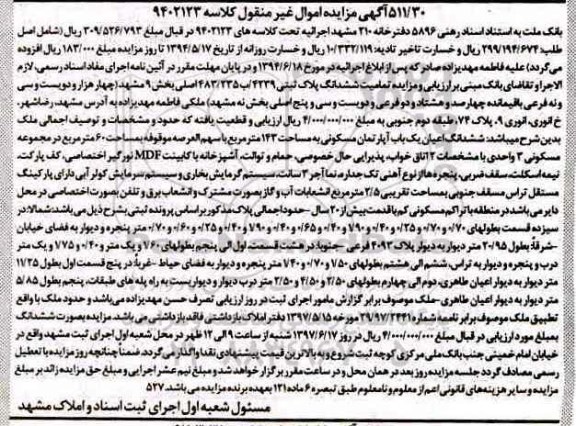 ۵۱۱/۳۰ آگهی مزایده اموال غیر منقول کلاسه ۹۴۰۲۱۲۳
بانک ملت به استناد اسناد رهنی ۵۸۹۶ دفترخانه ۲۱۰ مشهد اجرائیه تحت کلاسه های ۹۴۰۲۱۲۳ در قبال مبلغ ۳۰۹/۵۲۶/۷۹۳ ریال (شامل اصل
طلب: ۲۹۹/۱۹۴/۶۷۴ ریال و خسارت تاخیر تادیه: ۱۰/۳۳۲/۱۱۹ ریال و خسارت روزانه از تاریخ ۱۳۹۴/۵/۱۷ تا روز مزایده مبلغ ۱۸۳/۰۰۰ ریال افزوده
می گردد) علیه فاطمه مهدیزاده صادر که پس از ابلاغ اجرائیه در مورخ ۱۳۹۴/۶/۱۸ و در پایان مهلت مقرر در آئین نامه اجرای مفاد اسناد رسمی، لازم
الاجرا و تقاضای بانک مبنی بر ارزیابی و مزایده تمامیت ششدانگ پلاک ثبتی ۴۲۳۹/ب ۴۸۳/۲۳۵ اصلی بخش ۹ مشهد (چهار هزار و دویست و سی
و نه فرعی باقیمانده چهارصد و هشتاد و دو فرعی و دویست و سی و پنج اصلی بخش نه مشهد) ملکی فاطمه مهدیزاده به آدرس مشهد، رضاشهر،
خ انوری، انوری ۹، پلاک ۷۴، طبقه دوم جنوبی به مبلغ ۴/۰۰۰/۰۰۰/۰۰۰ ریال ارزیابی و قطعیت یافته که حدود و مشخصات و توصیف اجمالی ملک
بدین شرح میباشد: ششدانگ اعیان یک باب آپارتمان مسکونی به مساحت ۱۴۳ مترمربع با سهم العرصه موقوفه به مساحت ۶۰ مترمربع در مجموعه
مسکونی ۳ واحدی با مشخصات ۲ اتاق خواب، پذیرایی حال خصوصی، حمام و توالت، آشپزخانه با کابینت MDF نورگیر اختصاصی، کف پارکت،
نیمه اسکلت، سقف ضربی، پنجره ها از نوع آهنی تک جداره، نما آجر ۳ سانت، سیستم گرمایش بخاری و سیستم سرمایش کولر آبی دارای پارکینگ
مستقل تراس مسقف جنوبی بمساحت تقریبی ۲/۵ مترمربع انشعابات آب و گاز بصورت مشترک و انشعاب برق و تلفن بصورت اختصاصی در محل
دایر می باشد در منطقه با تراکم مسکونی کم با قدمت بیش از ۲۰ سال -حدود اجمالی پلاک مذکور بر اساس پرونده ثبتی بشرح ذیل می باشد: شمالا: در
سیزده قسمت بطولهای
-شرقاً: بطول ۲۰/۹۵ متر دیوار به دیوار پلاک ۴۰۹۲ فرعی -جنوبا: در هشت قسمت اول الی پنجم بطولهای
درب و پنجره و دیوار به تراس، ششم الی هشتم بطولهای ۷/۵۰ و ۰/۷۰ و ۷/۴۰ متر پنجره و دیوار به فضای حیاط -غربا: در پنج قسمت اول بطول ۱۱/۲۵
متر دیوار به دیوار اعیان ظاهری، دوم الی چهارم بطولهای ۲/۵۰ و ۴/۵۰ و ۲/۵۰ متر درب دیوار و دیواریست به راه پله های طبقات، پنجم بطول ۵/۸۵
متر دیوار به دیوار اعیان ظاهری -ملک موصوف برابر گزارش مامور اجرای ثبت در روز ارزیابی تصرف حسن مهدیزاده می باشد و حدود ملک با واقع
تطبیق ملک موصوف برابر نامه شماره ۲۹/۹۷/۲۴۴۱ مورخه ۱۳۹۷/۵/۱۵ دفتر املاک بازداشتی فاقد بازداشتی می باشد. مزایده بصورت ششدانگ
بمبلغ مورد ارزیابی در قبال مبلغ ۴/۰۰۰/۰۰۰/۰۰۰ ریال در روز ۱۳۹۷/۶/۱۷ شنبه از ساعت ۹ الی ۱۲ ظهر در محل شعبه اول اجرای ثبت مشهد واقع در
خیابان امام خمینی جنب بانک ملی مرکزی کوچه ثبت شروع و به بالاترین قیمت پیشنهادی نقدا واگذار می گردد. ضمناً چنانچه روز مزایده با تعطیل
رسمی مصادف گردد جلسه مزایده روز بعد در همان محل و در ساعت مقرر برگزار خواهد شد و مبلغ نیم عشر اجرایی و مبلغ حق مزایده زائد بر مبلغ
مزایده و سایر هزینه های قانونی اعم از معلوم و نامعلوم طبق تبصره ۶ ماده ۱۲۱ بعهده برنده مزایده می باشد. ۵۲۷
مسئول شعبه اول اجرای ثبت اسناد و املاک مشهد